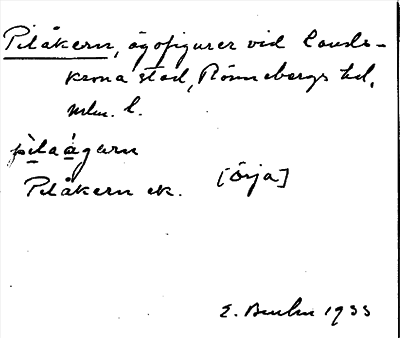 Pilåkern, ägofigurer vid Lands-
krona stad, Rönnebergs hd,
mlm. l.
pìlaágarn
Pilåkern ek. [Örja]
E. 1933